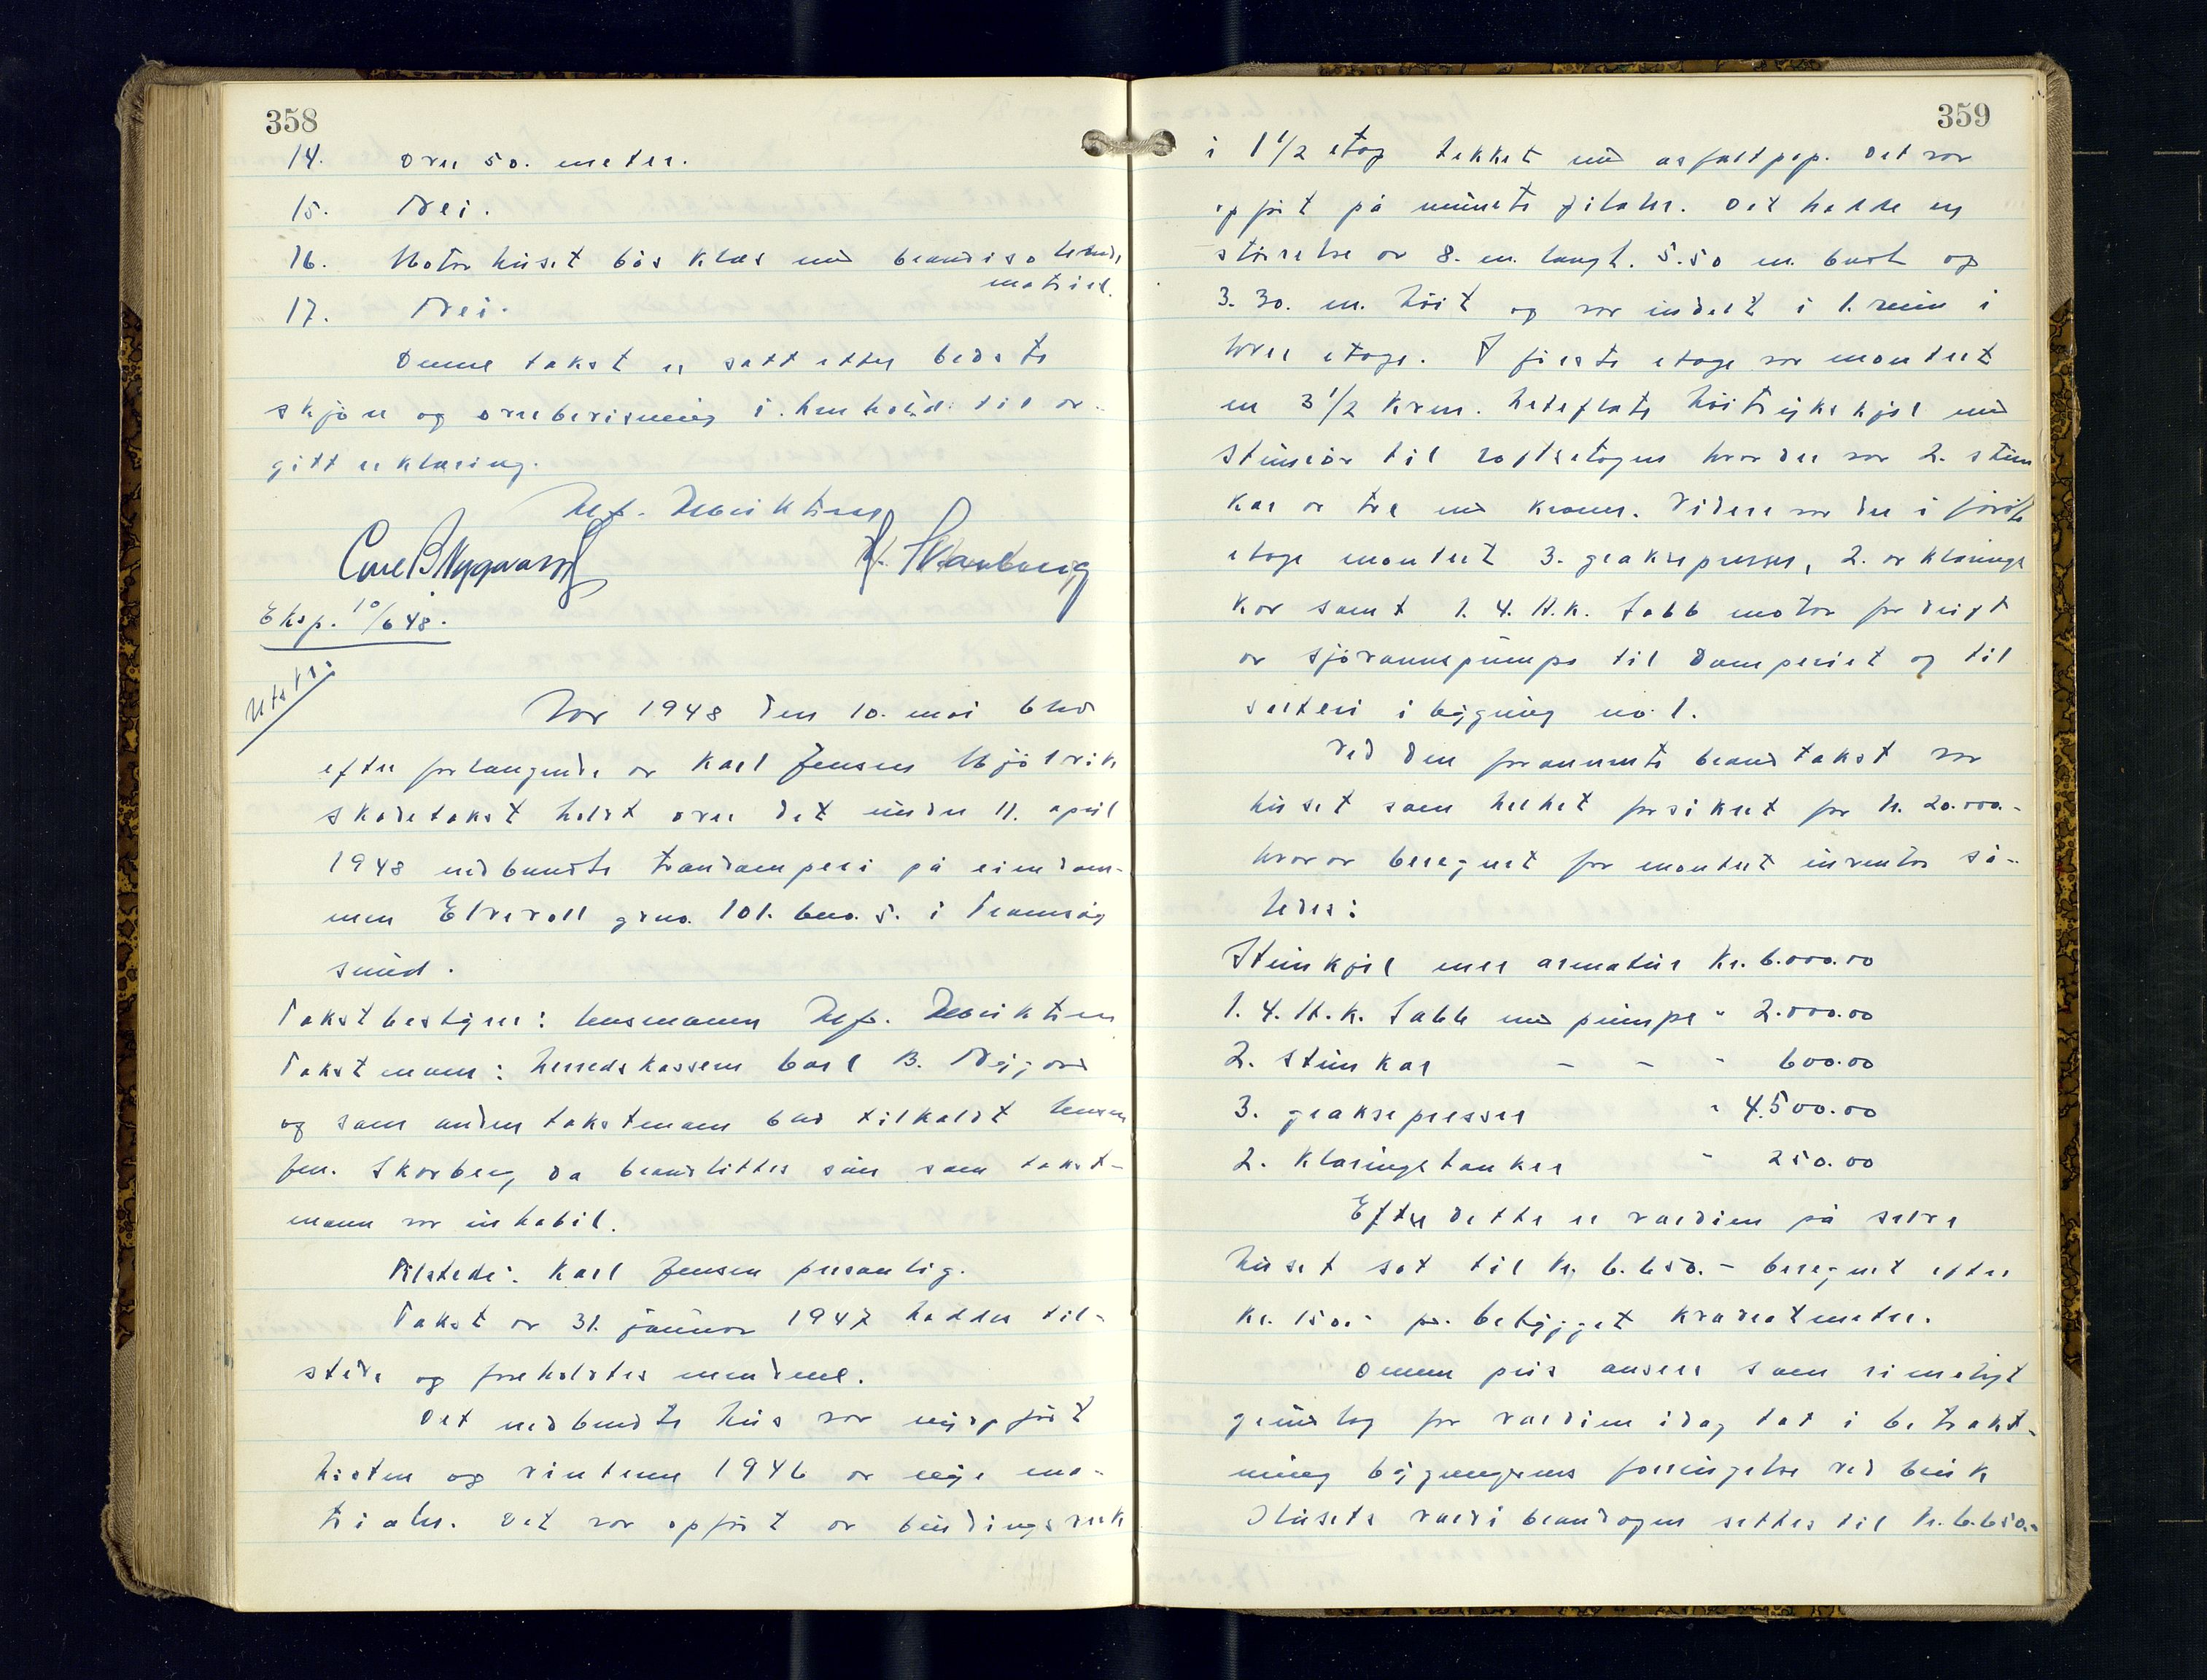 358
14. Over 50. meter.
15. Nei.
16. Motorhuset bös klæs med brandisolerende
matriel.
17. Nei.
Denne takst er satt etter bedste
skjön og overbevisning i henhold til av-
gitt erklæring.
Alf. Henriksen
Carl B Nygaard H. Skarberg
Eksp. 10/6 48.
Utstr:
Aar 1948 den 10. mai blev
efter forlangende av Karl Jensen Mjölvik
skadetakst holdt over det under 11. april
1948 nedbrendte trandamperi på eiendom-
men Elvevoll grno. 101. bno. 5. i Tromsöy
sund.
Takstbestyrer: lensmann Alf. Henriksen
Takstmann: herredskasserer Carl B. Nygård
og som anden takstmann blev tilkaldt lensm
fm. Skarberg, da branslittes sin som takst-
mann var inhabil.
Tilstede: Karl Jensen personlig.
Takst av 31. januar 1947 haddes til-
stede og foreholdtes mendene.
Det nedbrendte hus var nyopfört
hösten og vinteren 1946 av nye ma-
trialer. Det var opfört av bindingsverk
359
i 1 1/2 etag tekket med asfaltpap. Det var
opfört på murete pilaler. Det hadde en
störrelse av 8. m. langt. 5.50 m. bredt og
3.30. m. höit og var indelt i 1. rum i
hver etage. I förste etage var montert
en 3 1/2 kvm. heteflate höitrykskjel med
stimrör til loftsetagen hvor der var 2. stim
kar av tre med kraner. Videre var der i förste
etage montert 3. graksepresser, 2. av klarings
kar samt 1. 4. H.K. Sabb motor for drift
av sjövannspumpe til damperiet og til
salteri i bygning no 1.
Ved den forannevnte brandtakst var
huset som helhet forsikret for kr. 20.000.-
hvorav beregnet for montert inventar så-
ledes:
Stimkjel med armatur Kr. 6.000.00
1. 4. H.K. Sabb med pumpe " 2.000.00
2. stimkar - - " 600.00
3. graksepresser " 4.500.00
2. klaringstanker " 250.00
Efter dette er værdien på selve
huset sat til kr. 6.650.- beregnet efter
kr. 150.- pr. bebygget kvadratmeter.
Denne pris ansees som rimeligt
grundlag for værdien idag tat i betrakt-
ning bygningens forringelse ved bruk
Husets værdi branddagen settes til kr. 6.650.-